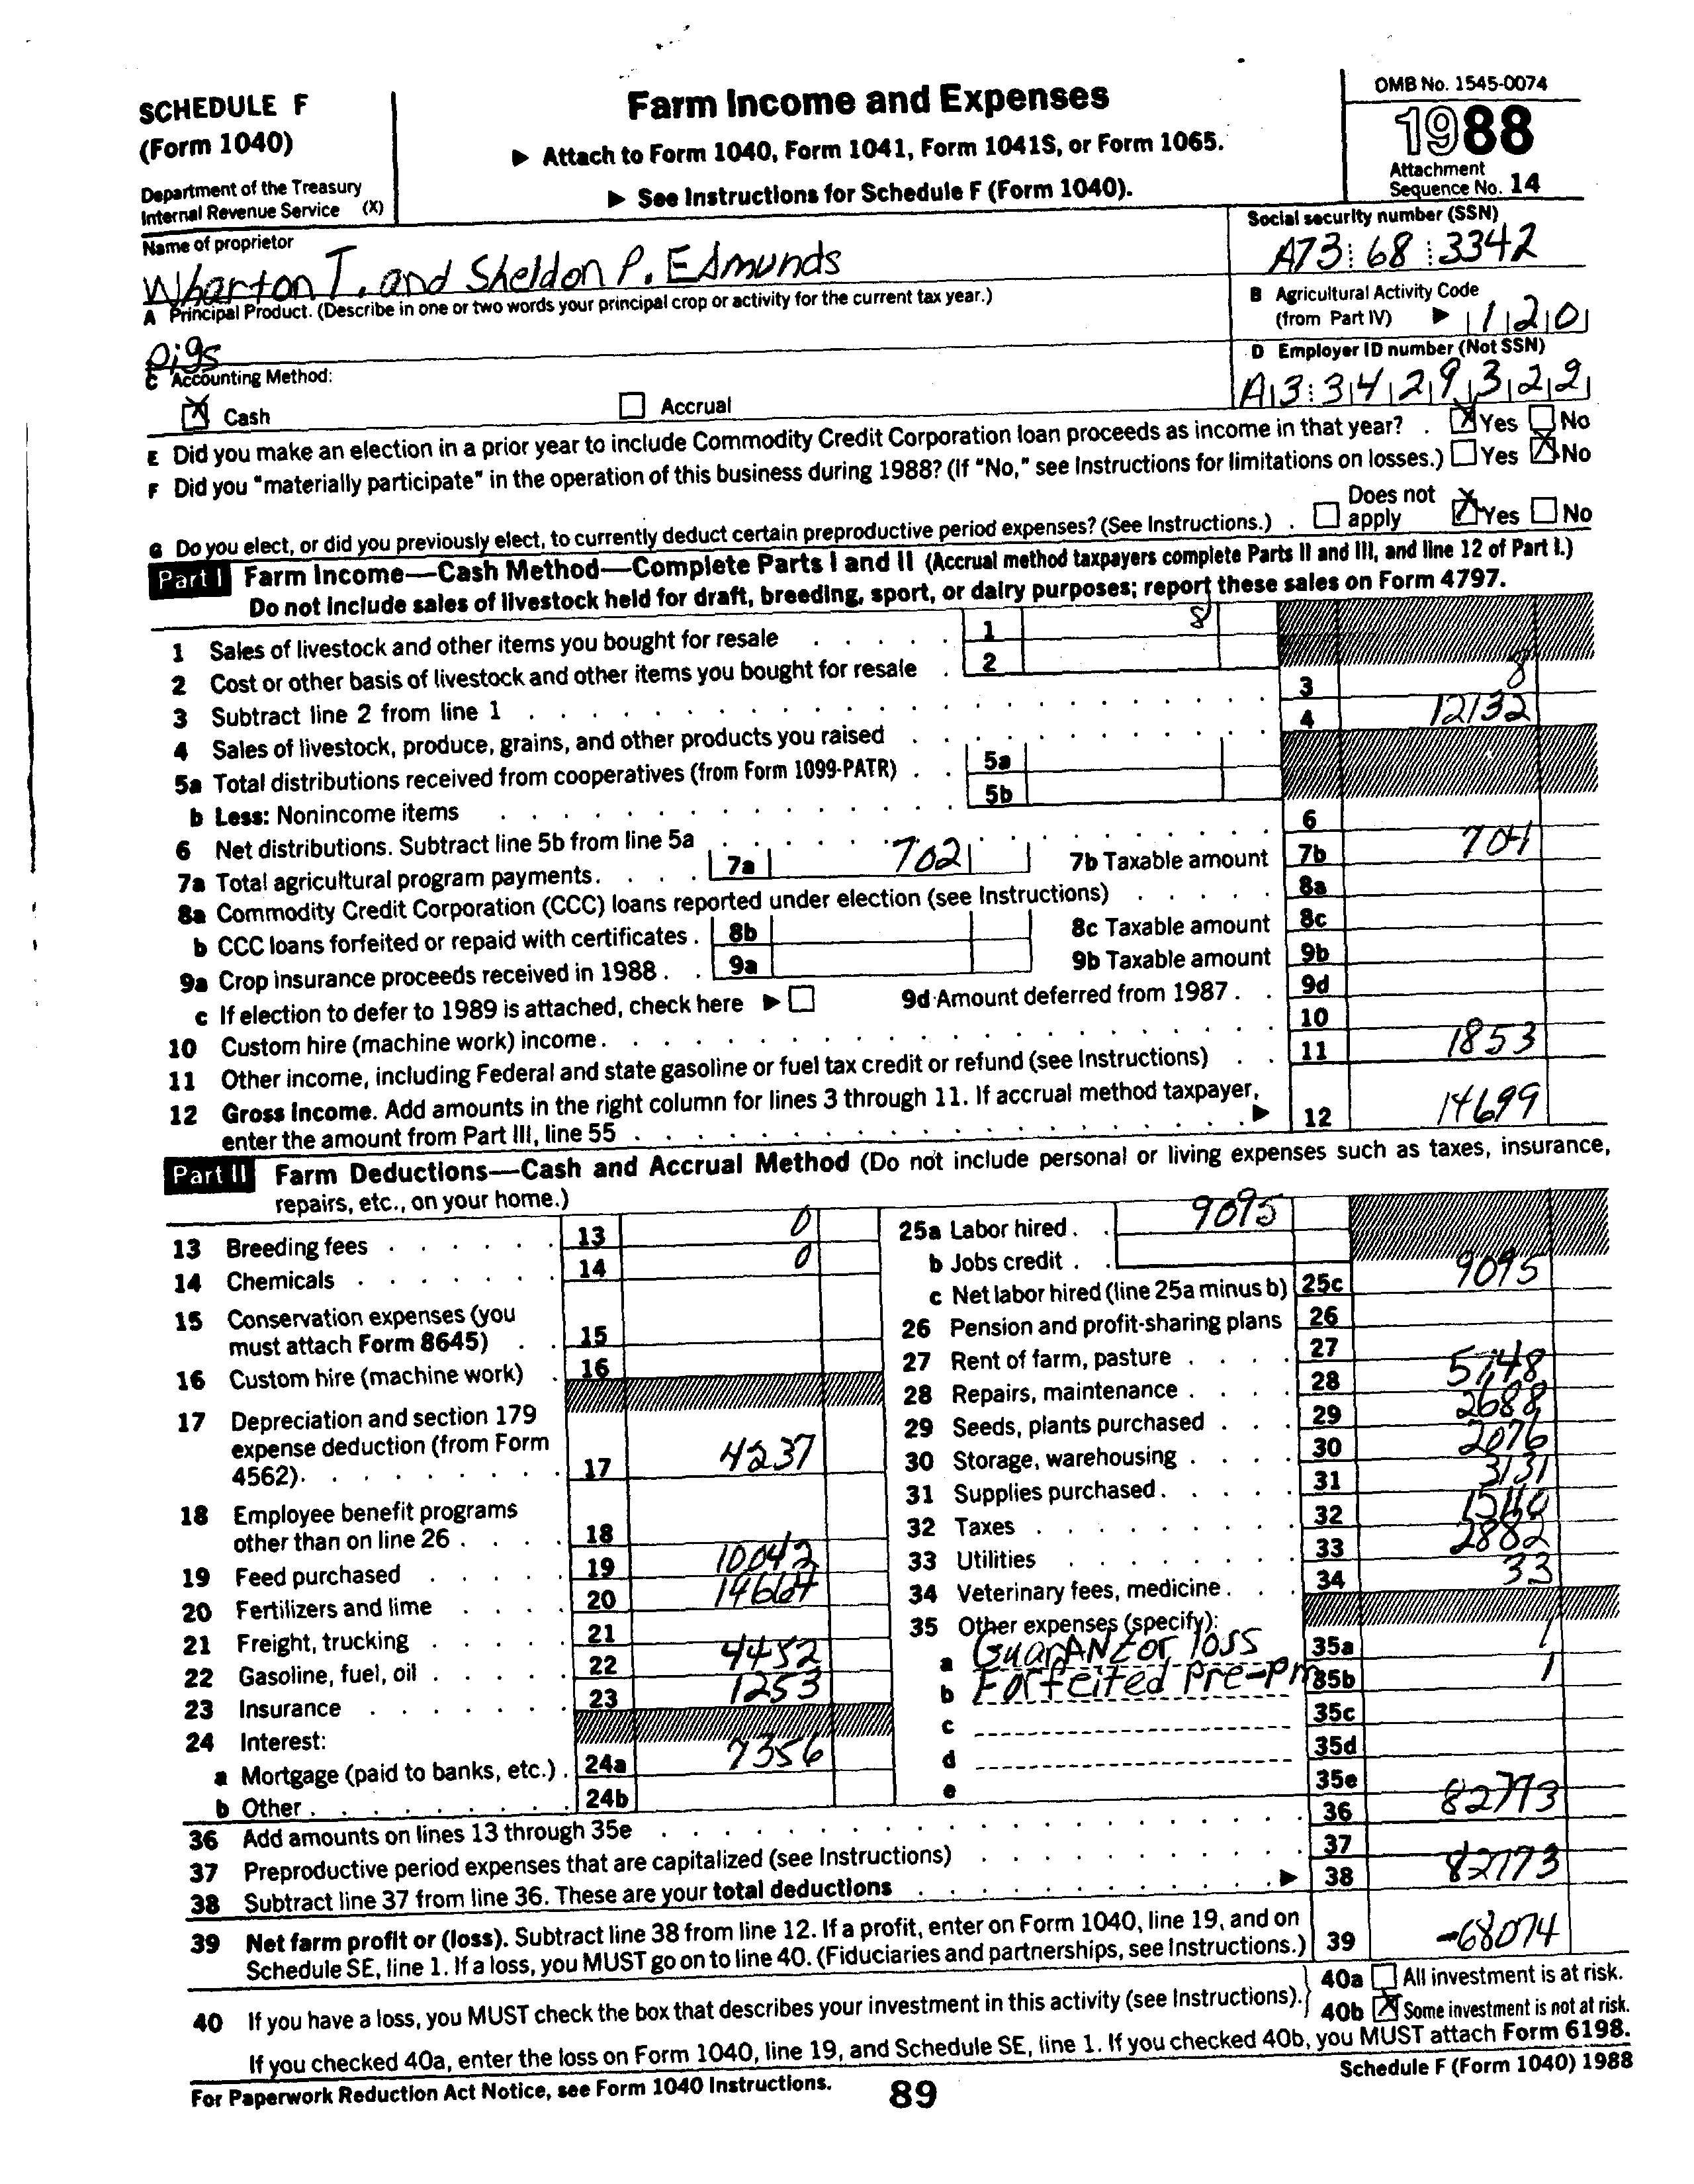 SCHEDULE F
(Form 1040)
Department of the Treasury
Internal Revenue Service (X)
Farm Income and Expenses
▶ Attach to Form 1040, Form 1041, Form 1041S, or Form 1065.
▶ See Instructions for Schedule F (Form 1040).
OMB No. 1545-0074
1988
Attachment
Sequence No. 14
Name of proprietor
Wharton T. and Sheldon P. Edmunds
Social security number (SSN)
A73 68 3342
A Principal Product. (Describe in one or two words your principal crop or activity for the current tax year.)
pigs
B Agricultural Activity Code
(from Part IV) ▶ 120
C Accounting Method:
Cash Accrual
D Employer ID number (Not SSN)
A33429322
E Did you make an election in a prior year to include Commodity Credit Corporation loan proceeds as income in that year? . Yes No
F Did you "materially participate" in the operation of this business during 1988? (If "No," see Instructions for limitations on losses.) Yes No
G Do you elect, or did you previously elect, to currently deduct certain preproductive period expenses? (See Instructions.) . Does not apply Yes No
Part I Farm Income—Cash Method—Complete Parts I and II (Accrual method taxpayers complete Parts II and III, and line 12 of Part I.)
Do not include sales of livestock held for draft, breeding, sport, or dairy purposes; report these sales on Form 4797.
1 Sales of livestock and other items you bought for resale 1 8
2 Cost or other basis of livestock and other items you bought for resale 2
3 Subtract line 2 from line 1 3 8
4 Sales of livestock, produce, grains, and other products you raised 4 12132
5a Total distributions received from cooperatives (from Form 1099-PATR) 5a
b Less: Nonincome items 5b
6 Net distributions. Subtract line 5b from line 5a 6
7a Total agricultural program payments. 7a 702 7b Taxable amount 7b 704
8a Commodity Credit Corporation (CCC) loans reported under election (see Instructions) 8a
b CCC loans forfeited or repaid with certificates. 8b 8c Taxable amount 8c
9a Crop insurance proceeds received in 1988. 9a 9b Taxable amount 9b
c If election to defer to 1989 is attached, check here ▶ 9d Amount deferred from 1987. 9d
10 Custom hire (machine work) income. 10
11 Other income, including Federal and state gasoline or fuel tax credit or refund (see Instructions) 11 1853
12 Gross Income. Add amounts in the right column for lines 3 through 11. If accrual method taxpayer,
enter the amount from Part III, line 55 ▶ 12 14699
Part II Farm Deductions—Cash and Accrual Method (Do not include personal or living expenses such as taxes, insurance,
repairs, etc., on your home.)
13 Breeding fees 13 0
14 Chemicals 14 0
15 Conservation expenses (you
must attach Form 8645) 15
16 Custom hire (machine work) 16
17 Depreciation and section 179
expense deduction (from Form
4562). 17 4237
18 Employee benefit programs
other than on line 26 18
19 Feed purchased 19 10042
20 Fertilizers and lime 20 14664
21 Freight, trucking 21
22 Gasoline, fuel, oil 22 4452
23 Insurance 23 1253
24 Interest:
a Mortgage (paid to banks, etc.) 24a 7356
b Other 24b
25a Labor hired 9095
b Jobs credit
c Net labor hired (line 25a minus b) 25c 9095
26 Pension and profit-sharing plans 26
27 Rent of farm, pasture 27
28 Repairs, maintenance 28 5748
29 Seeds, plants purchased 29 2688
30 Storage, warehousing 30 2076
31 Supplies purchased 31 3131
32 Taxes 32
33 Utilities 33 2882
34 Veterinary fees, medicine 34 33
35 Other expenses (specify):
a Guarantor loss 35a 1
b Forfeited Pre-pm 35b 1
c 35c
d 35d
e 35e
36 Add amounts on lines 13 through 35e 36 82773
37 Preproductive period expenses that are capitalized (see Instructions) 37
38 Subtract line 37 from line 36. These are your total deductions ▶ 38 82773
39 Net farm profit or (loss). Subtract line 38 from line 12. If a profit, enter on Form 1040, line 19, and on
Schedule SE, line 1. If a loss, you MUST go on to line 40. (Fiduciaries and partnerships, see Instructions.) 39 -68074
40 If you have a loss, you MUST check the box that describes your investment in this activity (see Instructions).
40a All investment is at risk.
40b Some investment is not at risk.
If you checked 40a, enter the loss on Form 1040, line 19, and Schedule SE, line 1. If you checked 40b, you MUST attach Form 6198.
For Paperwork Reduction Act Notice, see Form 1040 Instructions.
89
Schedule F (Form 1040) 1988